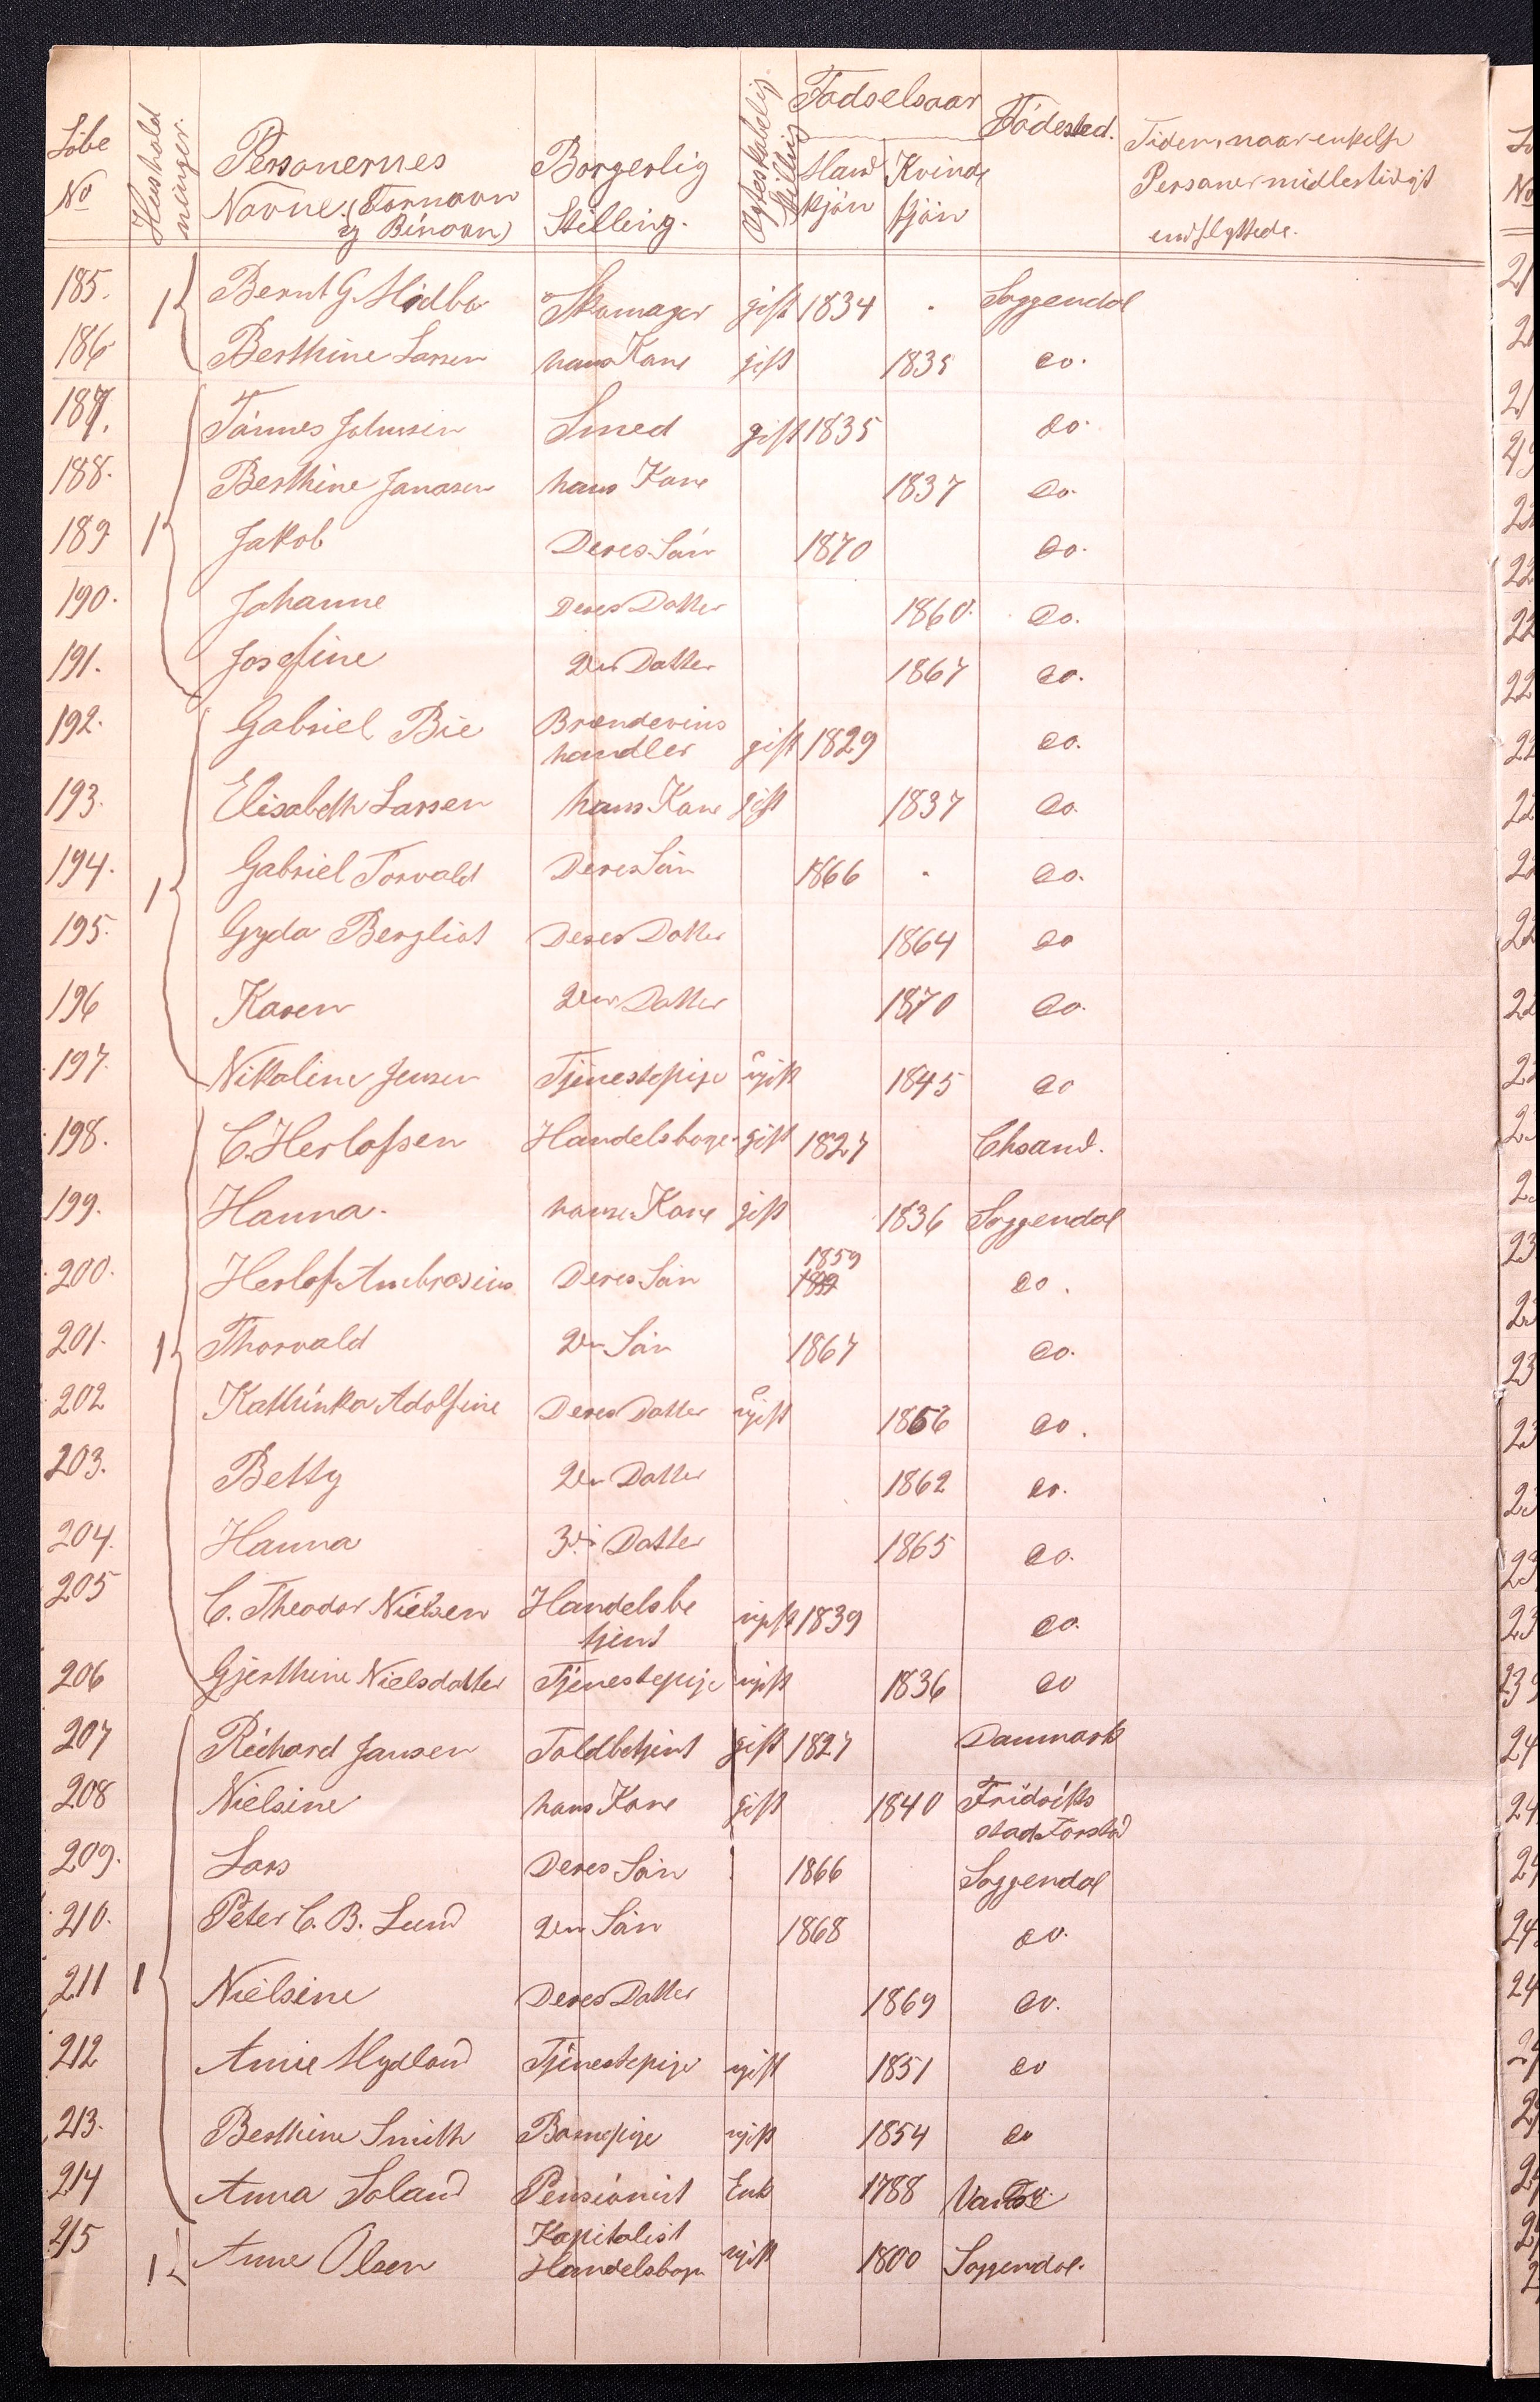 Løbe No Hushold ninger. Personernes Navne. (Fornavn og Binavn) Borgerlig Stilling. Ægteskabelig Stilling Fødselsaar Mand kjøn Kvinde kjøn Fødested. Tiden, naar enkelte Personer midlertidigt indflyttede.
185. 1 Bernt G Mødbø Skomager gift 1834 . Soggendal
186 Berthine Larsen hans Kone gift 1835 do.
187. Tønnes Johnsen Smed gift 1835 do.
188. Berthine Janasen hans Kone 1837 do.
189 1 Jakob Deres Søn 1870 do.
190. Johanne Deres Datter 1860. do.
191. Josefine 2den Datter 1867 do.
192. Gabriel Bie Brændevins
handler gift 1829 do.
193. Elisabeth Larsen hans Kone gift 1837 do.
194. 1 Gabriel Torvald Deres Søn 1866 . do.
195. Gyda Bergliot Deres Datter 1864 do
196 Karen 2den Datter 1870 do.
197. Nikoline Jensen Tjenestepige ugift 1845 do
198. C. Herlofsen Handelsborge. gift 1827 Chsand.
199. Hanna. hans Kone gift 1836 Soggendal
1859
200. Herlof Ambrosius Deres Søn do.
201. 1 Thorvald 2den Søn 1867 do.
202 Kathinka Adolfine Deres Datter ugift 1856 do.
203. Betty 2den Datter 1862 do.
204. Hanna 3die Datter 1865 do.
205 C. Theodor Nielsen Handelsbe
tjent ugift 1839 do.
206 Gjerthine Nielsdatter Tjenestepige ugift 1836 do
207 Richard Jansen Toldbetjent gift 1827 Danmark
208 Nielsine hans Kone gift 1840 Fridriks
stad Forstad
209. Lars Deres Søn 1866 Soggendal
210. Peter C. B. Lund 2den Søn 1868 do.
211 1 Nielsine Deres Datter 1869 do.
212 Anne Mydland Tjenestepige ugift 1851 do
213. Berthine Smith Barnepige ugift 1854 do
214 Anna Soland Pensionist Enk 1788 Vanse
215 1 Anne Olsen Kapitalist
Handelsborge ugift 1800 Soggendal.